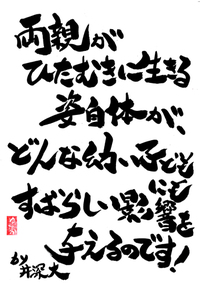 両親が
ひたむきに生きる
姿自体が、
どんな幼い子ども
にも
すばらしい影響を
与えるのです!
by 井深大